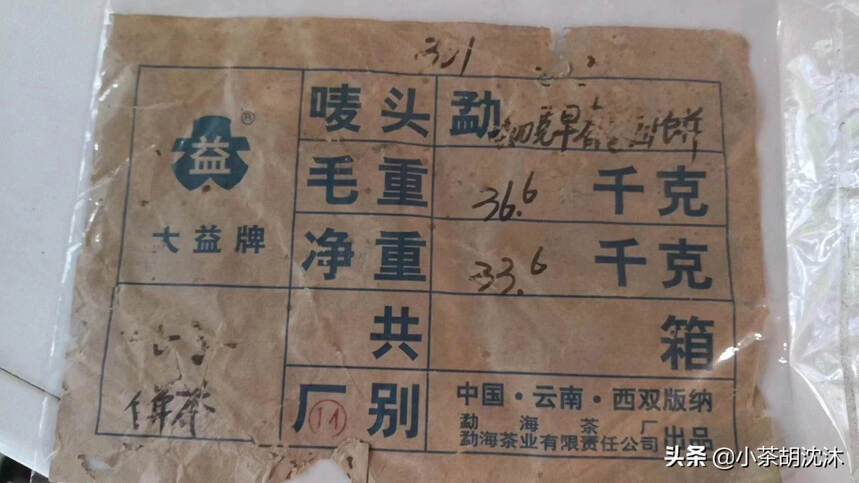 321
益 ®
大益牌
唛头 勐
毛重 36.6 千克
净重 33.6 千克
共 箱
饼茶
厂别 11 中国·云南·西双版纳
勐海茶厂
勐海茶业有限责任公司 出品
头条 @小茶胡沈沐